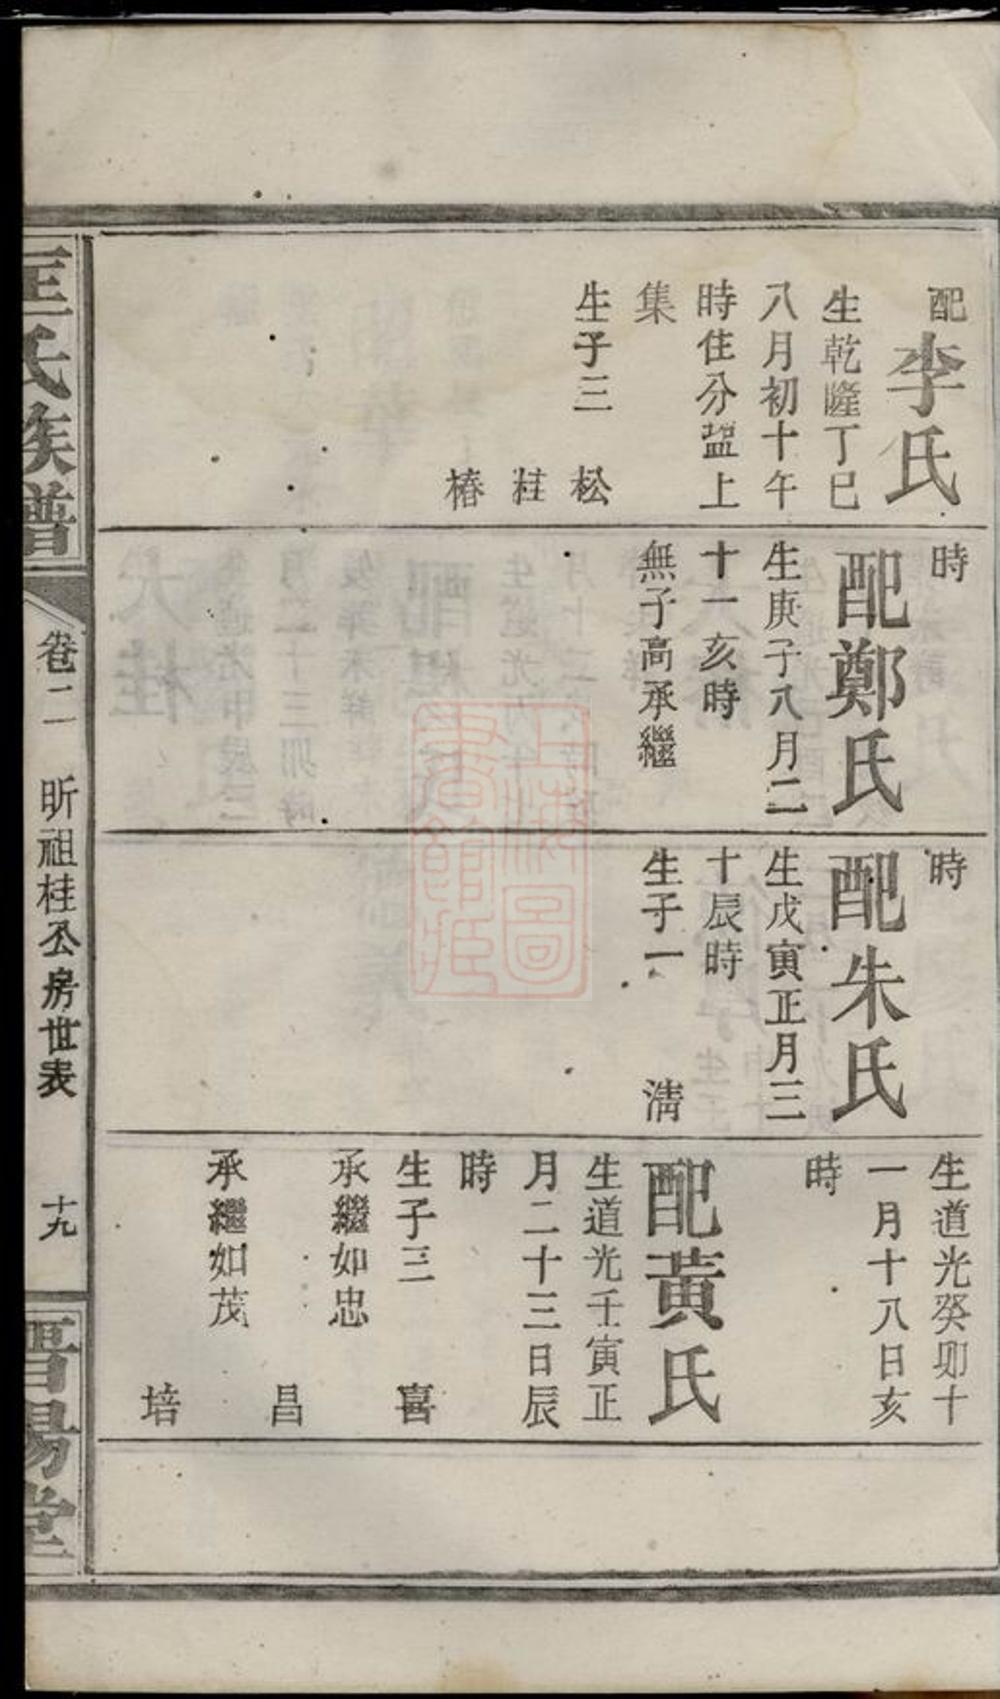 配李氏
生乾隆丁巳
八月初十午
時住分盌上
集
生子三
松
桂
椿
時
配鄭氏
生庚子八月二
十一亥時
無子高承繼
時
配朱氏
生戊寅正月三
十辰時
生子一
淸
生道光癸卯十
一月十八日亥
時
配黃氏
生道光壬寅正
月二十三日辰
時
生子三
喜
承繼如忠
昌
承繼如茂
培
匡氏族譜
卷二
昕祖桂公房世表
十九
晋陽堂
上海圖書館藏